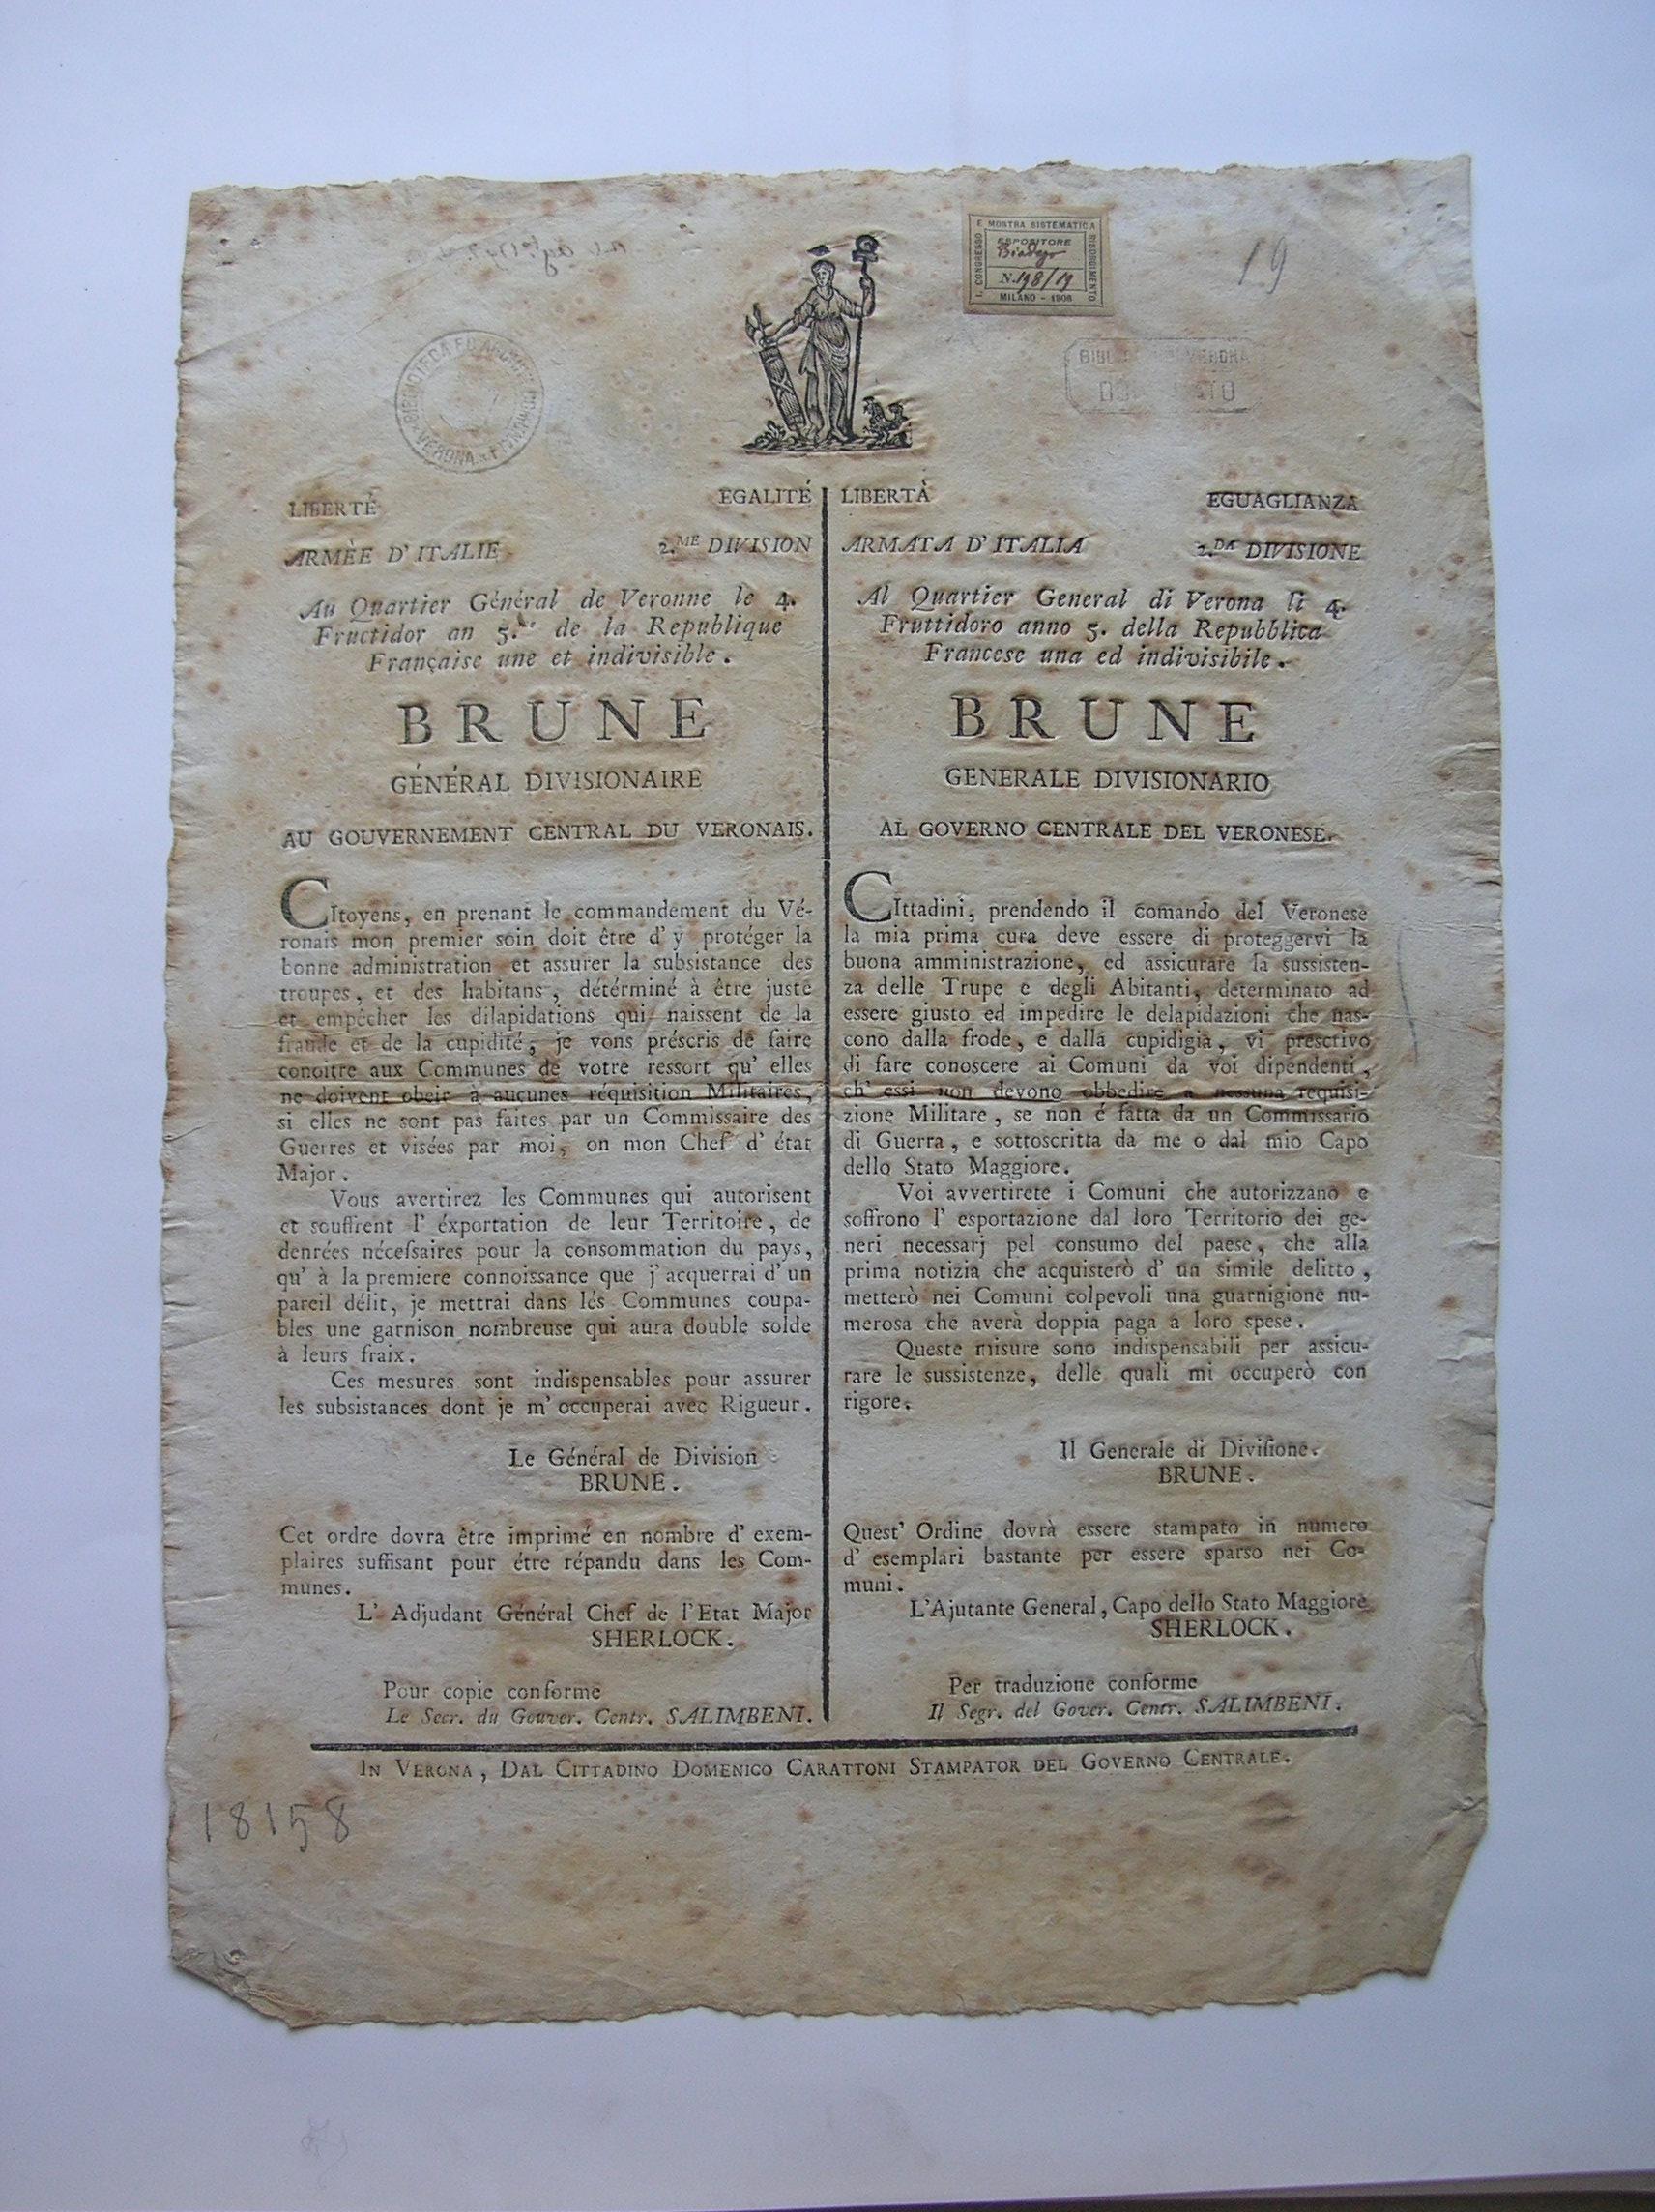 I. CONGRESSO E MOSTRA SISTEMATICA RISORGIMENTO
ESPOSITORE
Biadego
N. 198/19
MILANO - 1906
19
BIBLIOTECA ED ARCHIVI
VERONA
LIBERTÉ EGALITÉ
ARMÈE D' ITALIE 2.ME DIVISION
Au Quartier Général de Veronne le 4.
Fructidor an 5.me de la Republique
Française une et indivisible.
BRUNE
GÉNÉRAL DIVISIONAIRE
AU GOUVERNEMENT CENTRAL DU VERONAIS.
CItoyens, en prenant le commandement du Vé-
ronais mon premier soin doit être d' y protéger la
bonne administration et assurer la subsistance des
troupes, et des habitans, détérminé à être juste
et empêcher les dilapidations qui naissent de la
fraude et de la cupidité, je vons préscris de faire
conoitre aux Communes de votre ressort qu' elles
ne doivent obeir à aucunes réquisition Militaires,
si elles ne sont pas faites par un Commissaire des
Guerres et visées par moi, on mon Chef d' état
Major.
Vous avertirez les Communes qui autorisent
et souffrent l' éxportation de leur Territoire, de
denrées néceſsaires pour la consommation du pays,
qu' à la premiere connoissance que j' acquerrai d' un
pareil délit, je mettrai dans lés Communes coupa-
bles une garnison nombreuse qui aura double solde
à leurs fraix.
Ces mesures sont indispensables pour assurer
les subsistances dont je m' occuperai avec Rigueur.
Le Général de Division
BRUNE.
Cet ordre dovra être imprimé en nombre d' exem-
plaires suffisant pour étre répandu dans les Com-
munes.
L' Adjudant Général Chef de l'Etat Major
SHERLOCK.
Pour copie conforme
Le Secr. du Gouver. Centr. SALIMBENI.
LIBERTÀ EGUAGLIANZA
ARMATA D' ITALIA 2.DA DIVISIONE
Al Quartier General di Verona li 4.
Fruttidoro anno 5. della Repubblica
Francese una ed indivisibile.
BRUNE
GENERALE DIVISIONARIO
AL GOVERNO CENTRALE DEL VERONESE.
CIttadini, prendendo il comando del Veronese
la mia prima cura deve essere di proteggervi la
buona amministrazione, ed assicurare la sussisten-
za delle Trupe e degli Abitanti, determinato ad
essere giusto ed impedire le delapidazioni che nas-
cono dalla frode, e dalla cupidigia, vi prescrivo
di fare conoscere ai Comuni da voi dipendenti,
ch' essi non devono obbedire a nessuna requisi-
zione Militare, se non é fatta da un Commissario
di Guerra, e sottoscritta da me o dal mio Capo
dello Stato Maggiore.
Voi avvertirete i Comuni che autorizzano e
soffrono l' esportazione dal loro Territorio dei ge-
neri necessarj pel consumo del paese, che alla
prima notizia che acquisterò d' un simile delitto,
metterò nei Comuni colpevoli una guarnigione nu-
merosa che averà doppia paga a loro spese.
Queste misure sono indispensabili per assicu-
rare le sussistenze, delle quali mi occuperò con
rigore.
Il Generale di Diviſione.
BRUNE.
Quest' Ordine dovrà essere stampato in numero
d' esemplari bastante per essere sparso nei Co-
muni.
L'Ajutante General, Capo dello Stato Maggiore
SHERLOCK.
Per traduzione conforme
Il Segr. del Gover. Centr. SALIMBENI.
IN VERONA, DAL CITTADINO DOMENICO CARATTONI STAMPATOR DEL GOVERNO CENTRALE.
18158